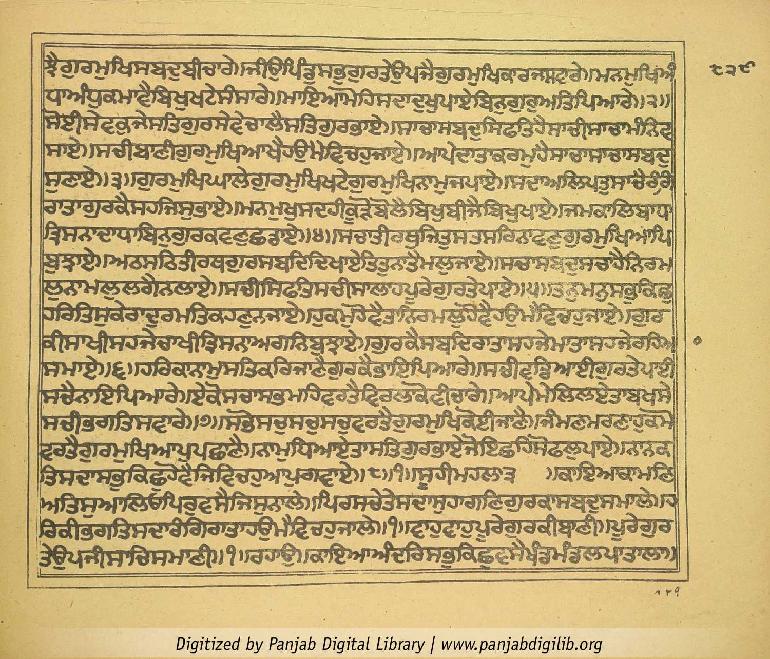 ਝੈਗੁਰਮੁਖਿਸਬਦੁਬੀਚਾਰੇ॥ਜੀਉਪਿੰਡੁਸਭੁਗੁਰਤੇਉਪਜੈਗੁਰਮੁਖਿਕਾਰਜਸਵਾਰੇ॥ਮਨਮੁਖਿਅੰ
ਧਾਅੰਧੁਕਮਾਵੈਬਿਖੁਖਟੇਸੰਸਾਰੇ॥ਮਾਇਆਮੋਹਿਸਦਾਦੁਖੁਪਾਏਬਿਨੁਗੁਰਅਤਿਪਿਆਰੇ॥੨॥
ਸੋਈਸੇਵਕੁਜੇਸਤਿਗੁਰਸੇਵੇਚਾਲੈਸਤਿਗੁਰਭਾਏ॥ਸਾਚਾਸਬਦੁਸਿਫਤਿਹੈਸਾਚੀਸਾਚਾਮੰਨਿਵ
ਸਾਏ॥ਸਚੀਬਾਣੀਗੁਰਮੁਖਿਆਖੈਹਉਮੈਵਿਚਹੁਜਾਏ॥ਆਪੇਦਾਤਾਕਰਮੁਹੈਸਾਚਾਸਾਚਾਸਬਦੁ
ਸੁਣਾਏ॥੩॥ਗੁਰਮੁਖਿਘਾਲੇਗੁਰਮੁਖਿਖਟੇਗੁਰਮੁਖਿਨਾਮੁਜਪਾਏ॥ਸਦਾਅਲਿਪਤੁਸਾਚੈਰੰਗਿ
ਰਾਤਾਗੁਰਕੈਸਹਜਿਸੁਭਾਏ॥ਮਨਮੁਖੁਸਦਹੀਕੂੜੋਬੋਲੈਬਿਖੁਬੀਜੈਬਿਖੁਖਾਏ॥ਜਮਕਾਲਿਬਾਧਾ
ਤ੍ਰਿਸਨਾਦਾਧਾਬਿਨੁਗੁਰਕਵਣੁਛਡਾਏ॥੪॥ਸਚਾਤੀਰਥੁਜਿਤੁਸਤਸਰਿਨਾਵਣੁਗੁਰਮੁਖਿਆਪਿ
ਬੁਝਾਏ॥ਅਠਸਠਿਤੀਰਥਗੁਰਸਬਦਿਦਿਖਾਏਤਿਤੁਨਾਤੈਮਲੁਜਾਏ॥ਸਚਾਸਬਦੁਸਚਾਹੈਨਿਰਮ
ਲੁਨਾਮਲੁਲਗੈਨਲਾਏ॥ਸਚੀਸਿਫਤਿਸਚੀਸਾਲਾਹਪੂਰੇਗੁਰਤੇਪਾਏ॥੫॥ਤਨੁਮਨੁਸਭੁਕਿਛੁ
ਹਰਿਤਿਸੁਕੇਰਾਦੁਰਮਤਿਕਹਣੁਨਜਾਏ॥ਹੁਕਮੁਹੋਵੈਤਾਨਿਰਮਲੁਹੋਵੈਹਉਮੈਵਿਚਹੁਜਾਏ॥ਗੁਰ
ਕੀਸਾਖੀਸਹਜੇਚਾਖੀਤ੍ਰਿਸਨਾਅਗਨਿਬੁਝਾਏ॥ਗੁਰਕੈਸਬਦਿਰਾਤਾਸਹਜੇਮਾਤਾਸਹਜੇਰਹਿਆ
ਸਮਾਏ॥੬॥ਹਰਿਕਾਨਾਮੁਸਤਿਕਰਿਜਾਣੈਗੁਰਕੈਭਾਇਪਿਆਰੇ॥ਸਚੀਵਡਿਆਈਗੁਰਤੇਪਾਈ
ਸਚੈਨਾਇਪਿਆਰੇ॥ਏਕੋਸਚਾਸਭਮਹਿਵਰਤੈਵਿਰਲਾਕੋਵੀਚਾਰੇ॥ਆਪੇਮੇਲਿਲਏਤਾਬਖਸੇ
ਸਚੀਭਗਤਿਸਵਾਰੇ॥੭॥ਸਭੋਸਚੁਸਚੁਸਚੁਵਰਤੈਗੁਰਮੁਖਿਕੋਈਜਾਣੈ॥ਜੰਮਣਮਰਣਾਹੁਕਮੋ
ਵਰਤੈਗੁਰਮੁਖਿਆਪੁਪਛਾਣੈ॥ਨਾਮੁਧਿਆਏਤਾਸਤਿਗੁਰੁਭਾਏਜੋਇਛੈਸੋਫਲੁਪਾਏ॥ਨਾਨਕ
ਤਿਸਦਾਸਭੁਕਿਛੁਹੋਵੈਜਿਵਿਚਹੁਆਪੁਗਵਾਏ॥੮॥੧॥ਸੂਹੀਮਹਲਾ੩ ॥ਕਾਇਆਕਾਮਣਿ
ਅਤਿਸੁਆਲਿਓਪਿਰੁਵਸੈਜਿਸੁਨਾਲੇ॥ਪਿਰਸਚੇਤੇਸਦਾਸੁਹਾਗਣਿਗੁਰਕਾਸਬਦੁਸਮਾਲੇ॥ਹ
ਰਿਕੀਭਗਤਿਸਦਾਰੰਗਿਰਾਤਾਹਉਮੈਵਿਚਹੁਜਾਲੇ॥੧॥ਵਾਹੁਵਾਹੁਪੂਰੇਗੁਰਕੀਬਾਣੀ॥ਪੂਰੇਗੁਰ
ਤੇਉਪਜੀਸਾਚਿਸਮਾਣੀ॥੧॥ਰਹਾਉ॥ਕਾਇਆਅੰਦਰਿਸਭੁਕਿਛੁਵਸੈਖੰਡਮੰਡਲਪਾਤਾਲਾ॥
Digitized by Panjab Digital Library | www.panjabdigilib.org